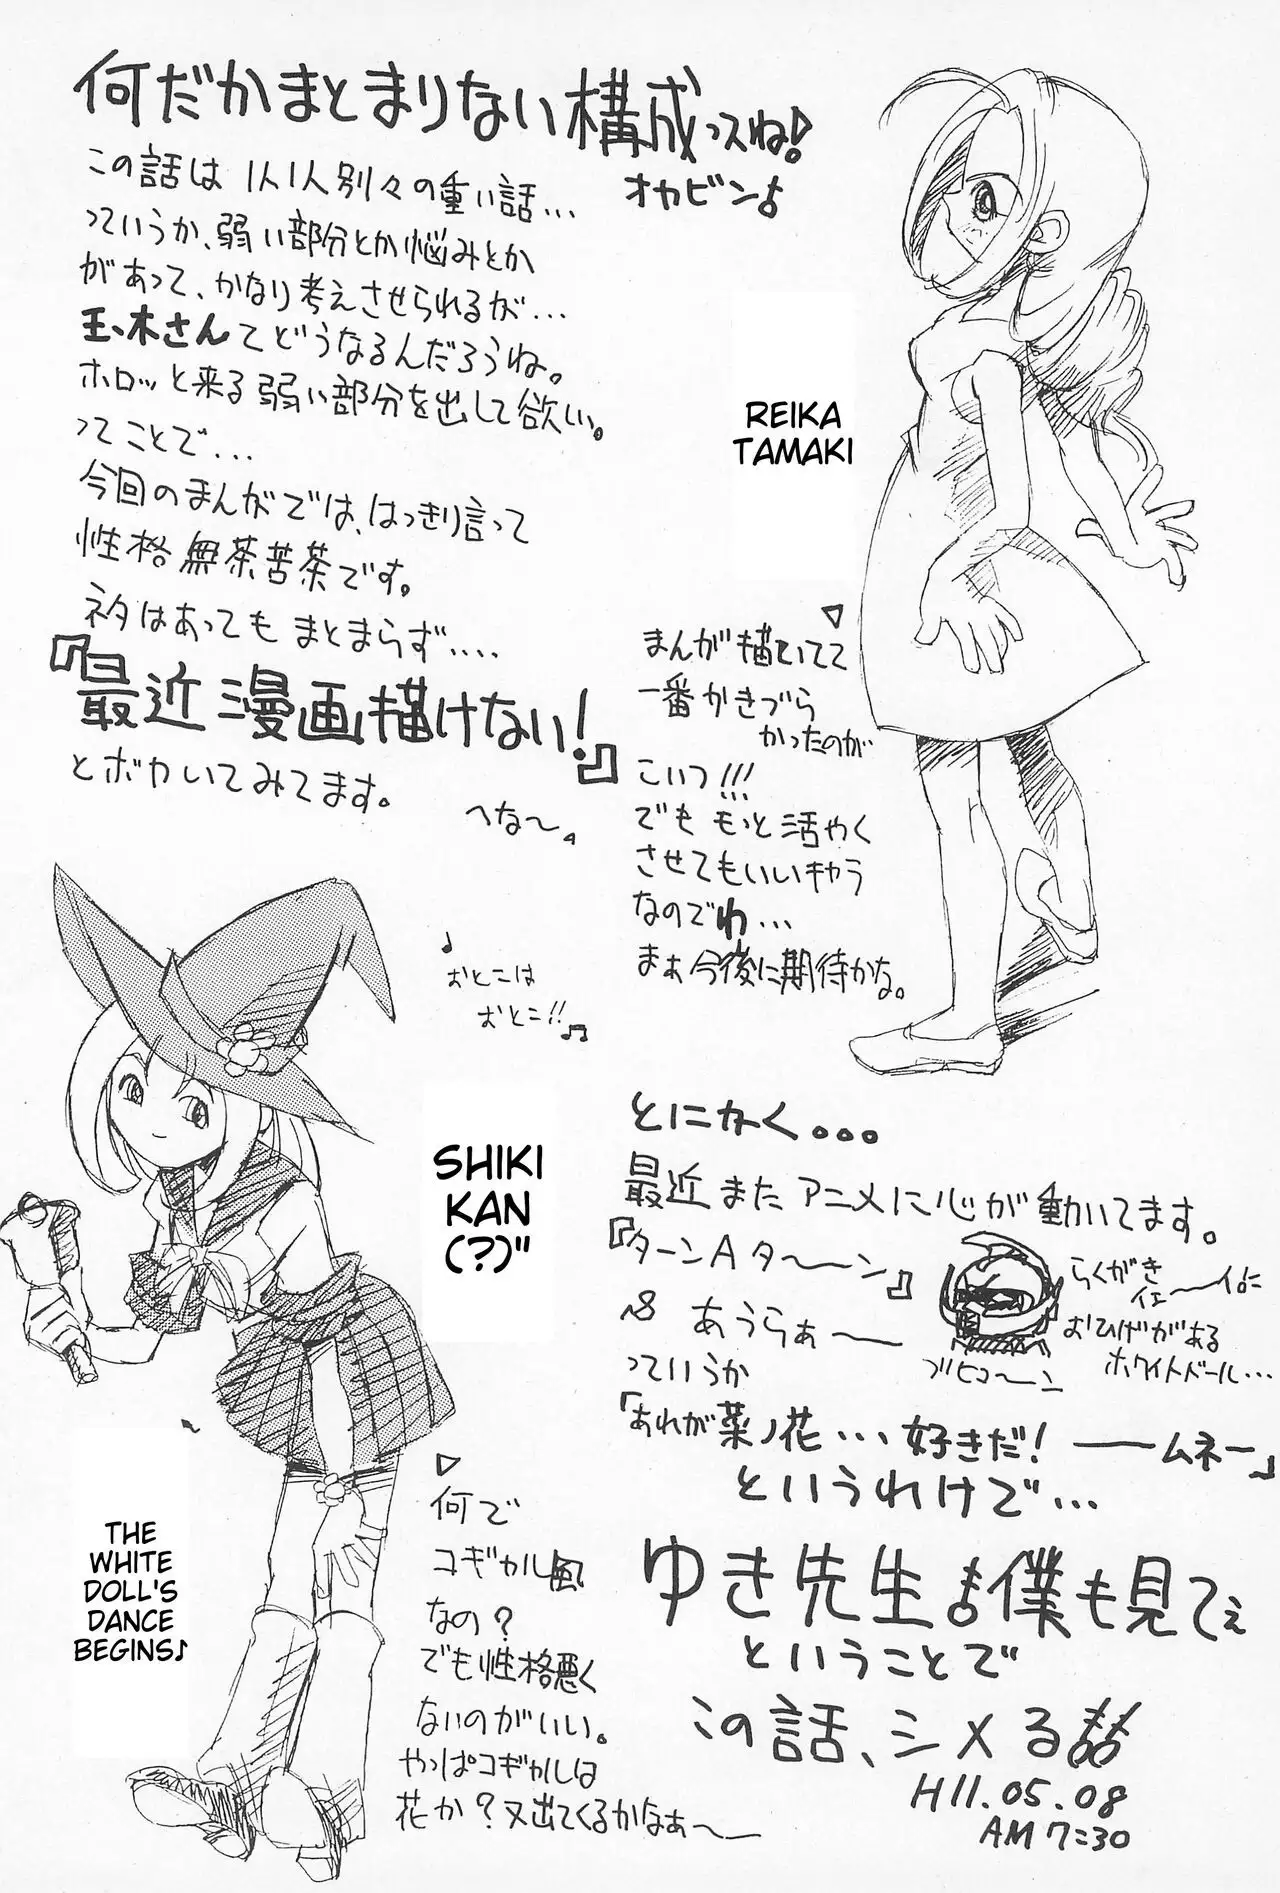 何だかまとまりない構成っスね!
オカビン♪
この話は1人1人別々の重い話…
っていうか、弱い部分とか悩みとか
があって、かなり考えさせられるが…
玉木さんてどうなるんだろうね。
ホロッと来る弱い部分を出して欲しい。
ってことで…
今回のまんがでは、はっきり言って
性格無茶苦茶です。
ネタはあってもまとまらず‥‥
『最近漫画描けない!』
とボカいてみてます。
へな〜。
REIKA
TAMAKI
まんが描いてて
一番かきづら
かったのが
こいつ!!!
でももっと活やく
させてもいいキャラ
なのでわ…
まぁ今後に期待かな。
♪
おとこは
おとこ!!♫
SHIKI
KAN
(?)"
THE
WHITE
DOLL'S
DANCE
BEGINS♪
何で
コギャル風
なの?
でも性格悪く
ないのがいい。
やっぱコギャルは
花か?又出てくるかなぁ〜
とにかく。。。
最近またアニメに心が動いてます。
『ターンAターーン』
〜8 あうらぁ〜
らくがき
おひげがある
ホワイトドール…
っていうか
「あれが菜ノ花…好きだ! ——ムネー」
というわけで…
ゆき先生も僕も見てぇ
ということで
この話、シメる
H11.05.08
AM 7:30